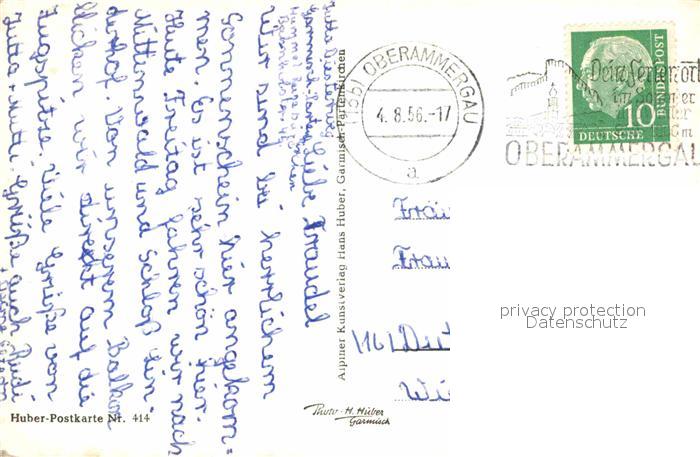 Jutta Dietrich
Garmisch-Parten
Liebe Traudel
Wir sind bei herrlichem
Sonnenschein hier angekom=
men. Es ist sehr schön hier.
Heute Freitag fahren wir nach
Mittenwald und Schloß Lin=
derhof. Von unserem Balkon
blicken wir direkt auf die
Zugspitze. Viele Grüße von
Jutta + Mutti Grüße auch Rudi
Huber-Postkarte Nr. 414
Alpiner Kunstverlag Hans Huber, Garmisch-Partenkirchen
Photo - H. Huber
Garmisch
(13b) OBERAMMERGAU
4.8.56.-17
a
Dein Ferienort
im Sommer
OBERAMMERGAU
10
DEUTSCHE
BUNDESPOST
Frau
(16)
privacy protection
Datenschutz